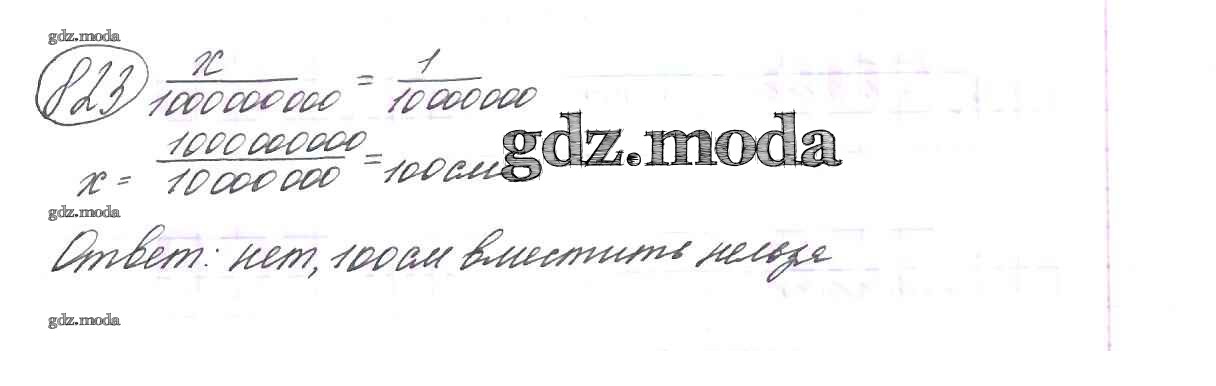 gdz.moda
823) x/1000000000 = 1/10000000
x = 1000000000/10000000 = 100см
gdz.moda
gdz.moda
Ответ: нет, 100см вместить нельзя
gdz.moda